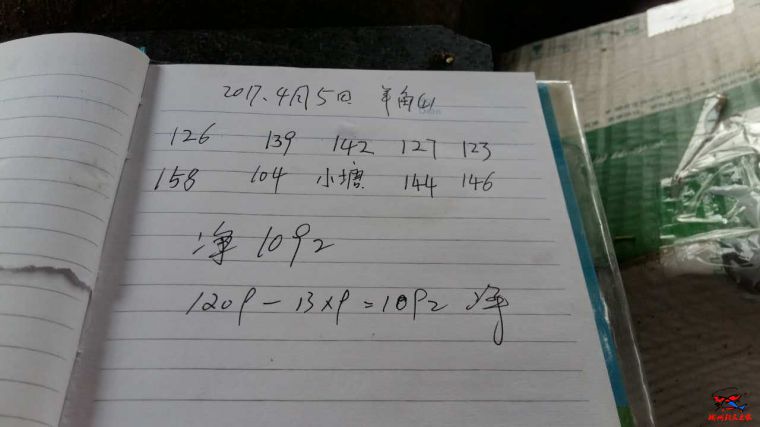 2017.4月5日 羊角山
126 139 142 127 123
158 104 小塘 144 146
净 1092
1209-13×9=1092 净